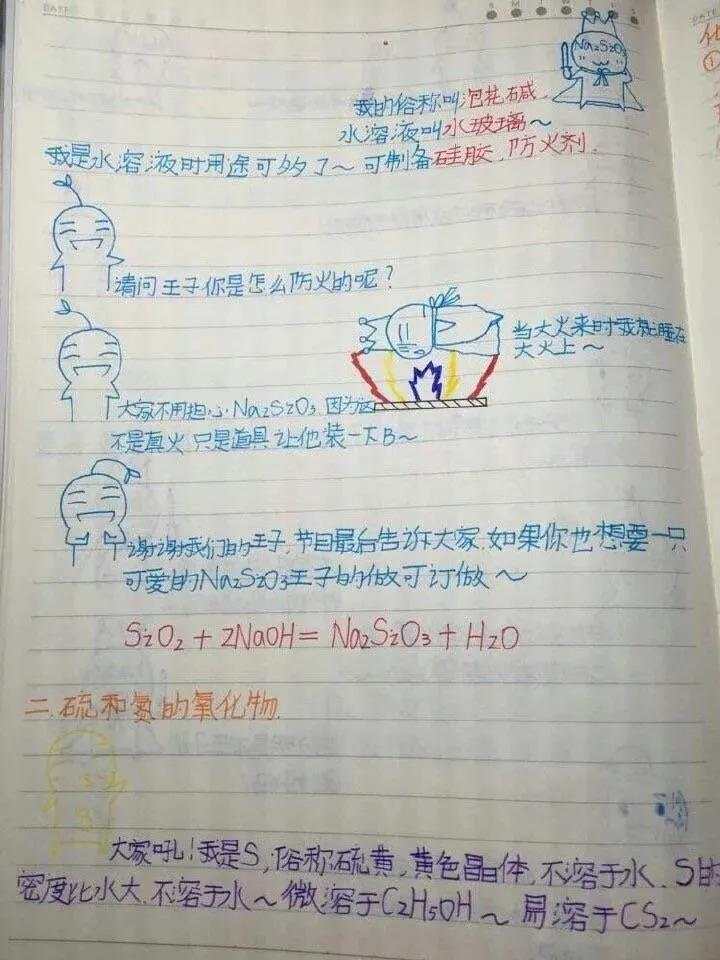 DATE
S M T W T F S
DATE
Na2SzO3
化
①
我的俗称叫泡花碱.
水溶液叫水玻璃~
我是水溶液时用途可多了~可制备硅胶,防火剂.
请问王子你是怎么防火的呢?
当大火来时我就睡在
大火上~
大家不用担心Na2SzO3,因为这
不是真火只是道具让他装一下B~
谢谢我们的王子,节目最后告诉大家.如果你也想要一只
可爱的Na2SzO3王子的做可订做~
SzO2+2NaOH=Na2SzO3+H2O
二.硫和氮的氧化物.
S
大家吼!我是S,俗称硫黄,黄色晶体,不溶于水.S的
密度比水大.不溶于水~微溶于C2H5OH~易溶于CS2~